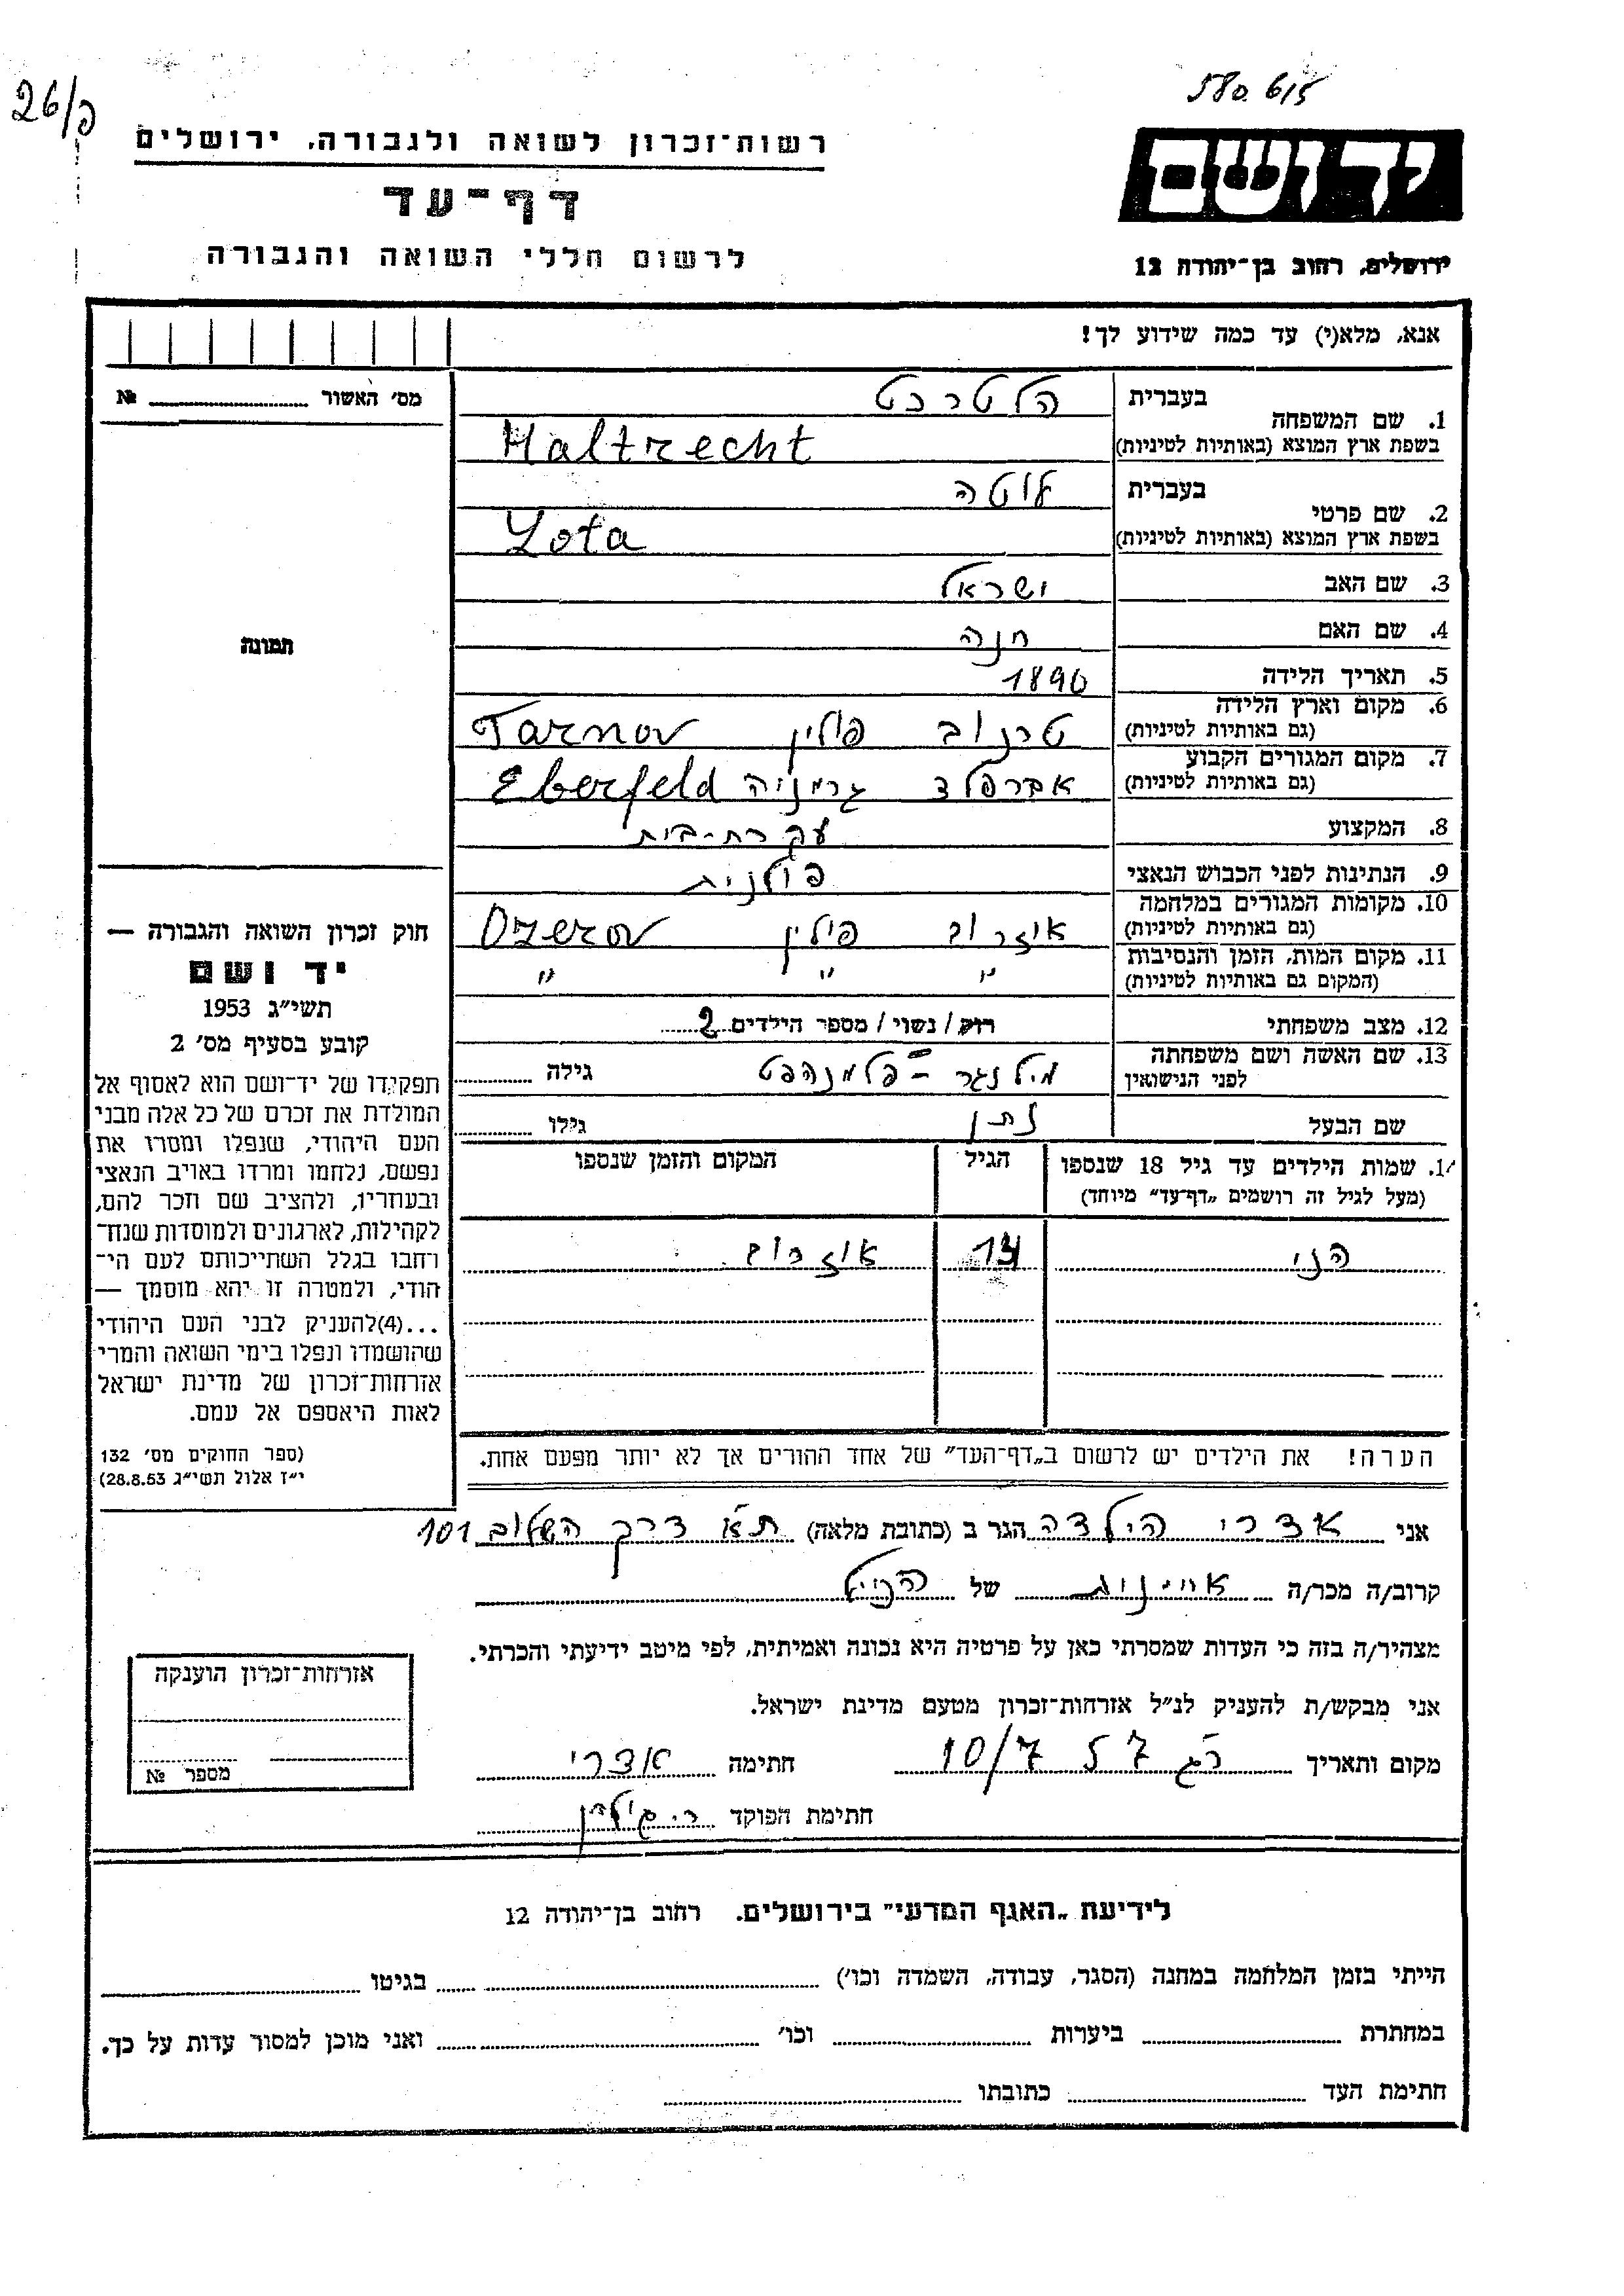 26/פ
580.615
רשות־זכרון לשואה ולגבורה, ירושלים
דף־עד
לרשום חללי השואה והגבורה
יד ושם
ירושלים, רחוב בן־יהודה 12
אנא, מלא(י) עד כמה שידוע לך!
מס' האשור № 
תמונה
1. שם המשפחה בעברית הלטרכט
בשפת ארץ המוצא (באותיות לטיניות) Haltrecht
2. שם פרטי בעברית לוטה
בשפת ארץ המוצא (באותיות לטיניות) Lota
3. שם האב ישראל
4. שם האם חנה
5. תאריך הלידה 1890
6. מקום וארץ הלידה
(גם באותיות לטיניות) טרנוב פולין Tarnov
7. מקום המגורים הקבוע
(גם באותיות לטיניות) אברפלד גרמניה Eberfeld
8. המקצוע עקרת-בית
9. הנתינות לפני הכבוש הנאצי פולנית
10. מקומות המגורים במלחמה
(גם באותיות לטיניות) אוזרוב פולין Ozerov
11. מקום המות, הזמן והנסיבות
(המקום גם באותיות לטיניות) " " "
12. מצב משפחתי רוק/נשוי/מספר הילדים 2
13. שם האשה ושם משפחתה
לפני הנישואין גילה
שם הבעל נתן גילו
14. שמות הילדים עד גיל 18 שנספו הגיל המקום והזמן שנספו
(מעל לגיל זה רושמים „דף־עד” מיוחד)
הני 14 אוזרוב
הערה! את הילדים יש לרשום ב„דף־העד” של אחד ההורים אך לא יותר מפעם אחת.
חוק זכרון השואה והגבורה —
יד ושם
תשי״ג 1953
קובע בסעיף מס' 2
תפקידו של יד־ושם הוא לאסוף אל
המולדת את זכרם של כל אלה מבני
העם היהודי, שנפלו ומסרו את
נפשם, נלחמו ומרדו באויב הנאצי
ובעוזריו, ולהציב שם וזכר להם,
לקהילות, לארגונים ולמוסדות שנח־
רחבו בגלל השתייכותם לעם הי־
הודי, ולמטרה זו יהא מוסמך —
...(4)להעניק לבני העם היהודי
שהושמדו ונפלו בימי השואה והמרי
אזרחות־זכרון של מדינת ישראל
לאות היאספם אל עמם.
(ספר החוקים מס' 132
י״ז אלול תשי״ג 28.8.53)
אני אדרי הילדה הגר ב (כתובת מלאה) ת״א דרך השלום 101
קרוב/ה מכר/ה אחינית של הנ״ל
מצהיר/ה בזה כי העדות שמסרתי כאן על פרטיה היא נכונה ואמיתית, לפי מיטב ידיעתי והכרתי.
אני מבקש/ת להעניק לנ״ל אזרחות־זכרון מטעם מדינת ישראל.
מקום ותאריך 10/7 חתימה אדרי
חתימת הפוקד
אזרחות־זכרון הוענקה
מספר №
לידיעת „האגף המדעי” בירושלים. רחוב בן־יהודה 12
הייתי בזמן המלחמה במחנה (הסגר, עבודה, השמדה וכו') בגיטו
במחתרת ביערות וכו' ואני מוכן למסור עדות על כך.
חתימת העד כתובתו